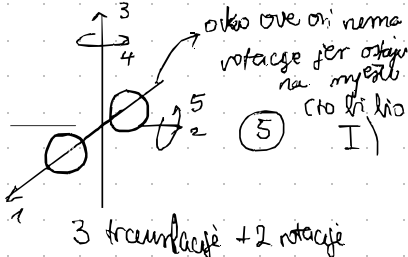 3
oko ove osi nema
4
rotacije jer ostaju
na mjestu
5
(to bi bio
2
5
I)
1
3 translacije + 2 rotacije